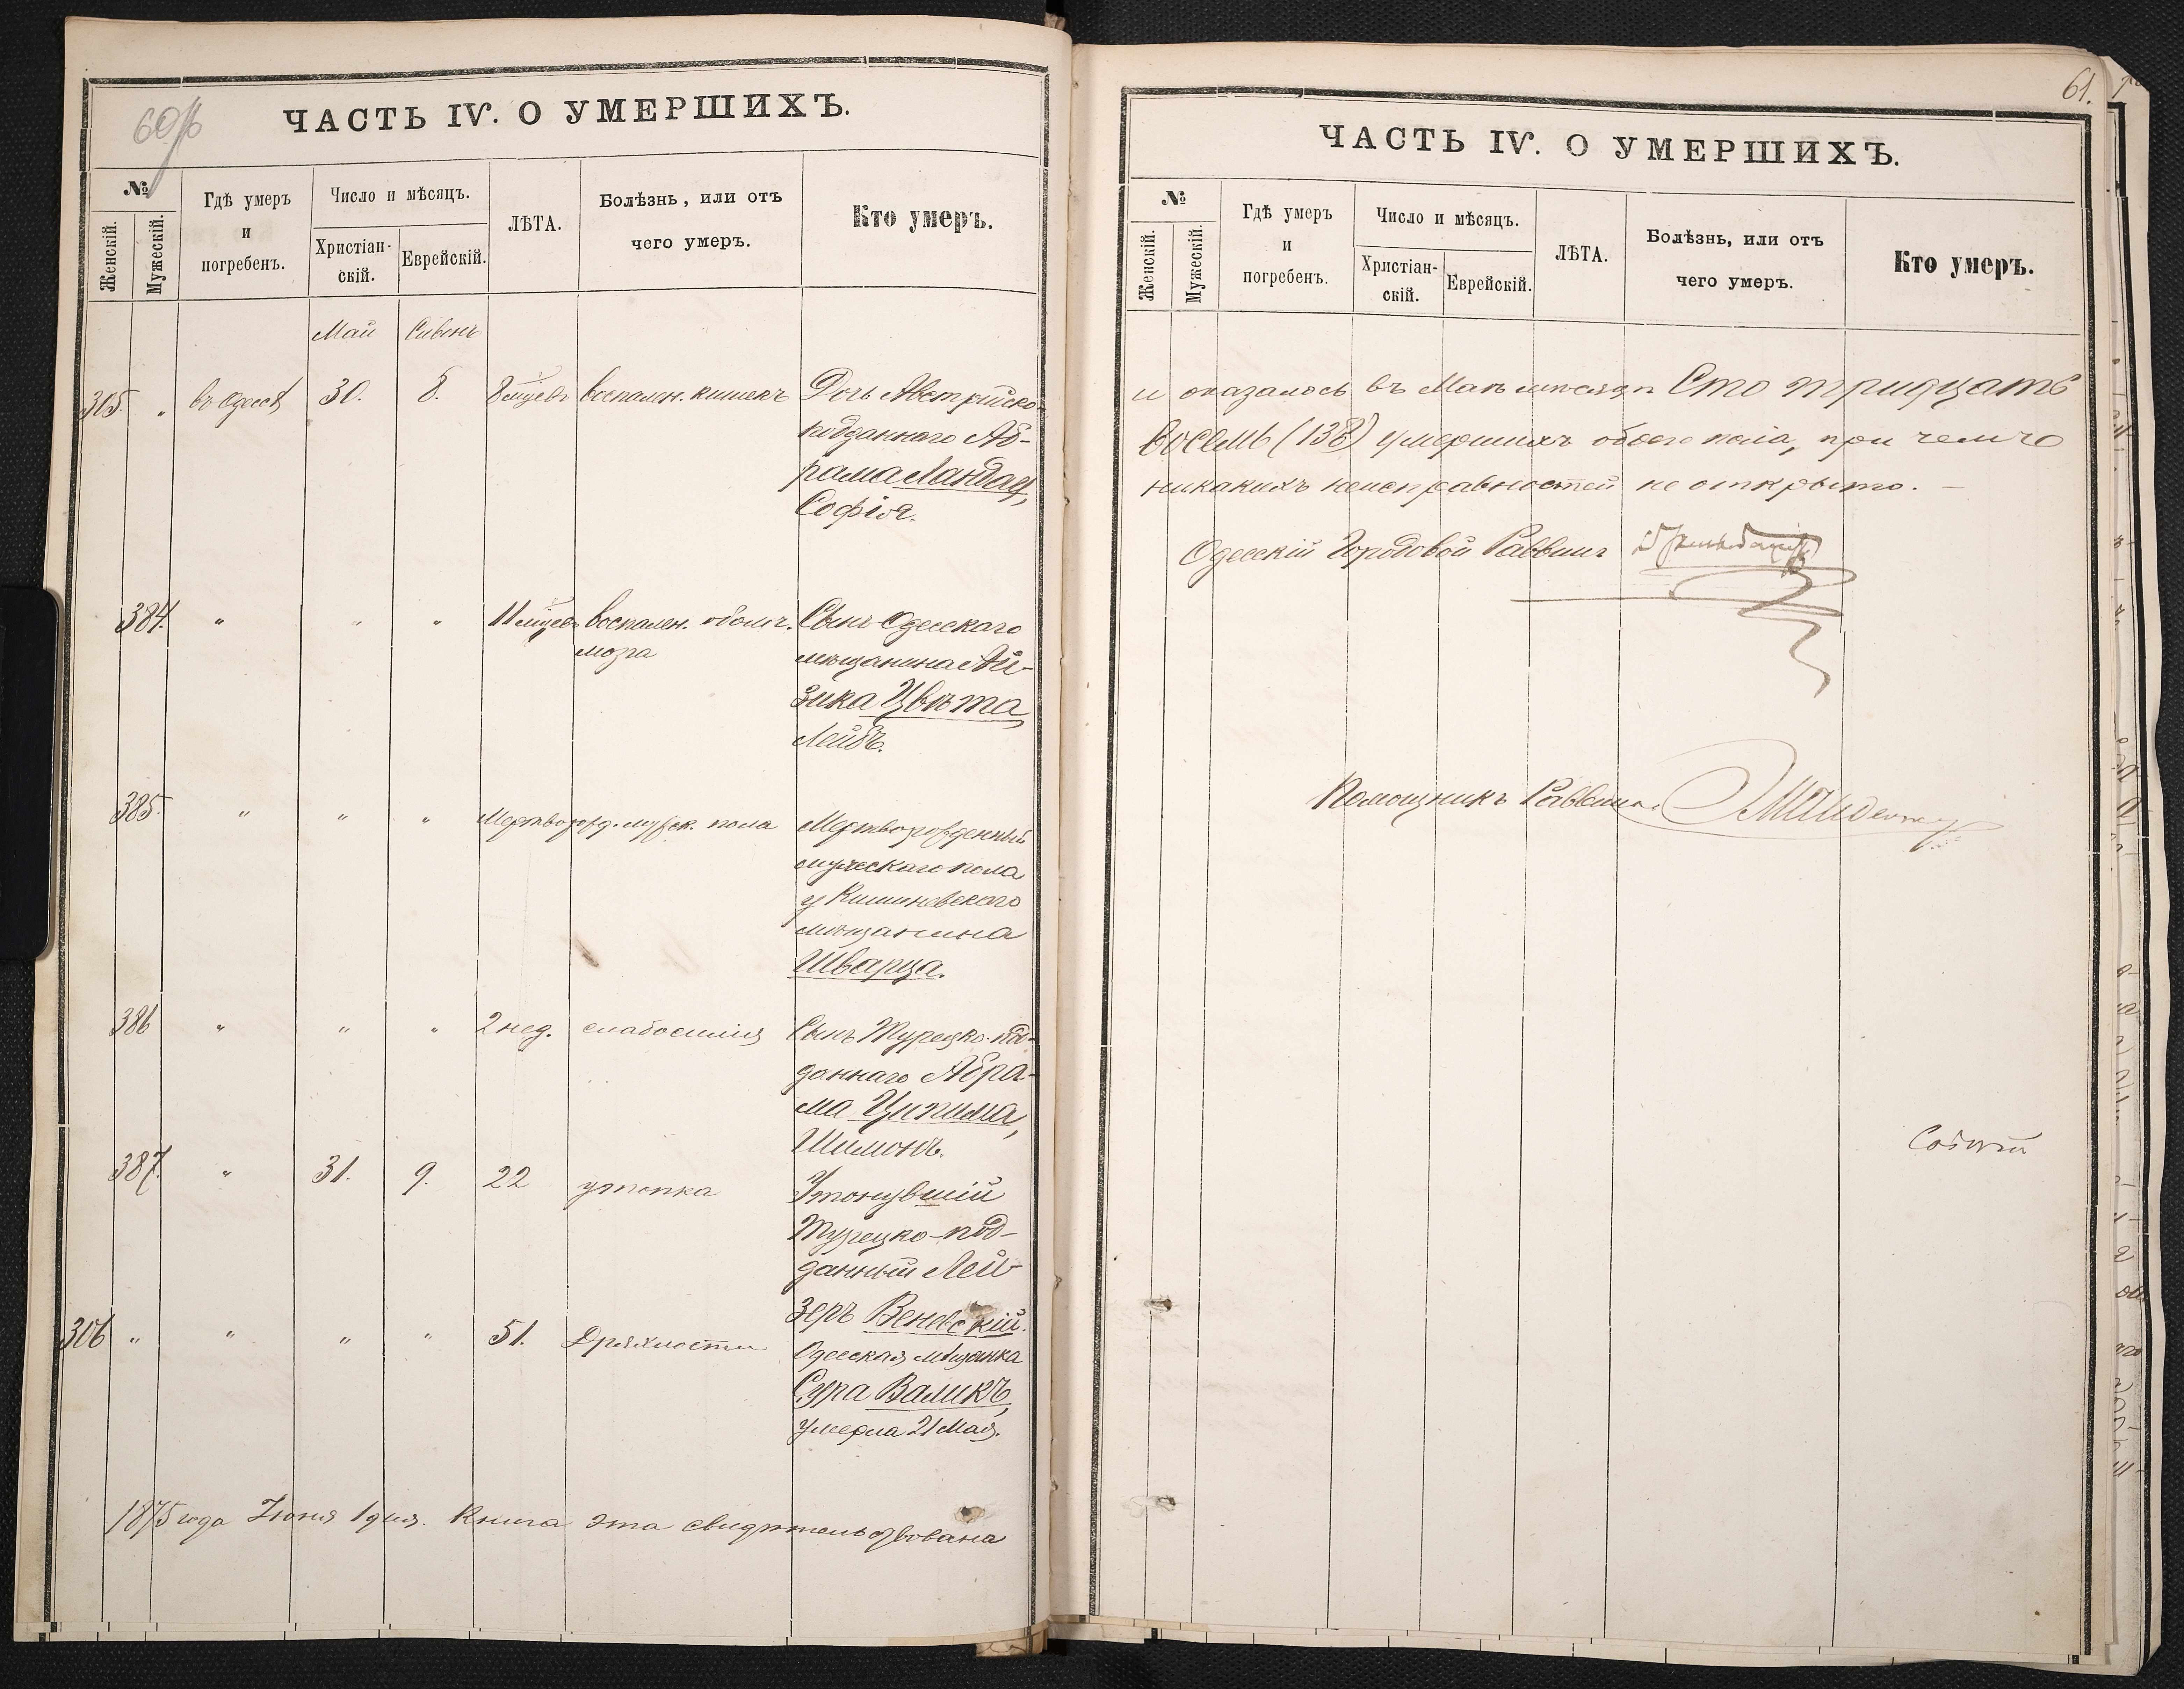 60/б
ЧАСТЬ IV. О УМЕРШИХЪ.
№
Женскій.
Мужескій.
Гдѣ умеръ
и
погребенъ.
Число и мѣсяцъ.
Христіан-
скій.
Еврейскій.
ЛѢТА.
Болѣзнь, или отъ
чего умеръ.
Кто умеръ.
Май Сивонъ
305. „ въ Одессѣ 30. 8. 8 мѣсцевъ воспален. кишекъ Дочь Австрійско-
подданнаго Аб-
рама Ландау,
Софія.
384. „ „ „ 11 мѣсцевъ воспален. оболч. Сынъ Одесскаго
мозга
мѣщанина Ай-
зика Цвѣта
Лейбъ.
385. „ „ „ Мертворожд. мужск. пола Мертворожденный
мужескаго пола
у Кишиневскаго
мѣщанина
Шварца.
386 „ „ „ 2 нед. слабосилія Сынъ Турецко-под-
даннаго Абра-
ма Циписа,
Шимонъ.
387. „ 31. 9. 22 утопка Утонувшій
Турецко-под-
данный Лей-
зеръ Веневскій.
306 „ „ „ „ 51. Дряхлости Одесская мѣщанка
Сура Валикъ,
умерла 21 Мая.
1875 года Іюня 1 дня. Книга эта свидѣтельствована
61.
ЧАСТЬ IV. О УМЕРШИХЪ.
№
Женскій.
Мужескій.
Гдѣ умеръ
и
погребенъ.
Число и мѣсяцъ.
Христіан-
скій.
Еврейскій.
ЛѢТА.
Болѣзнь, или отъ
чего умеръ.
Кто умеръ.
и оказалось въ Маѣ мѣсяцѣ Сто тридцать
восемь (138) умершихъ обоего пола, при чемъ
никакихъ неисправностей не открыто. —
Одесскій Городовой Раввинъ
Помощникъ Раввина